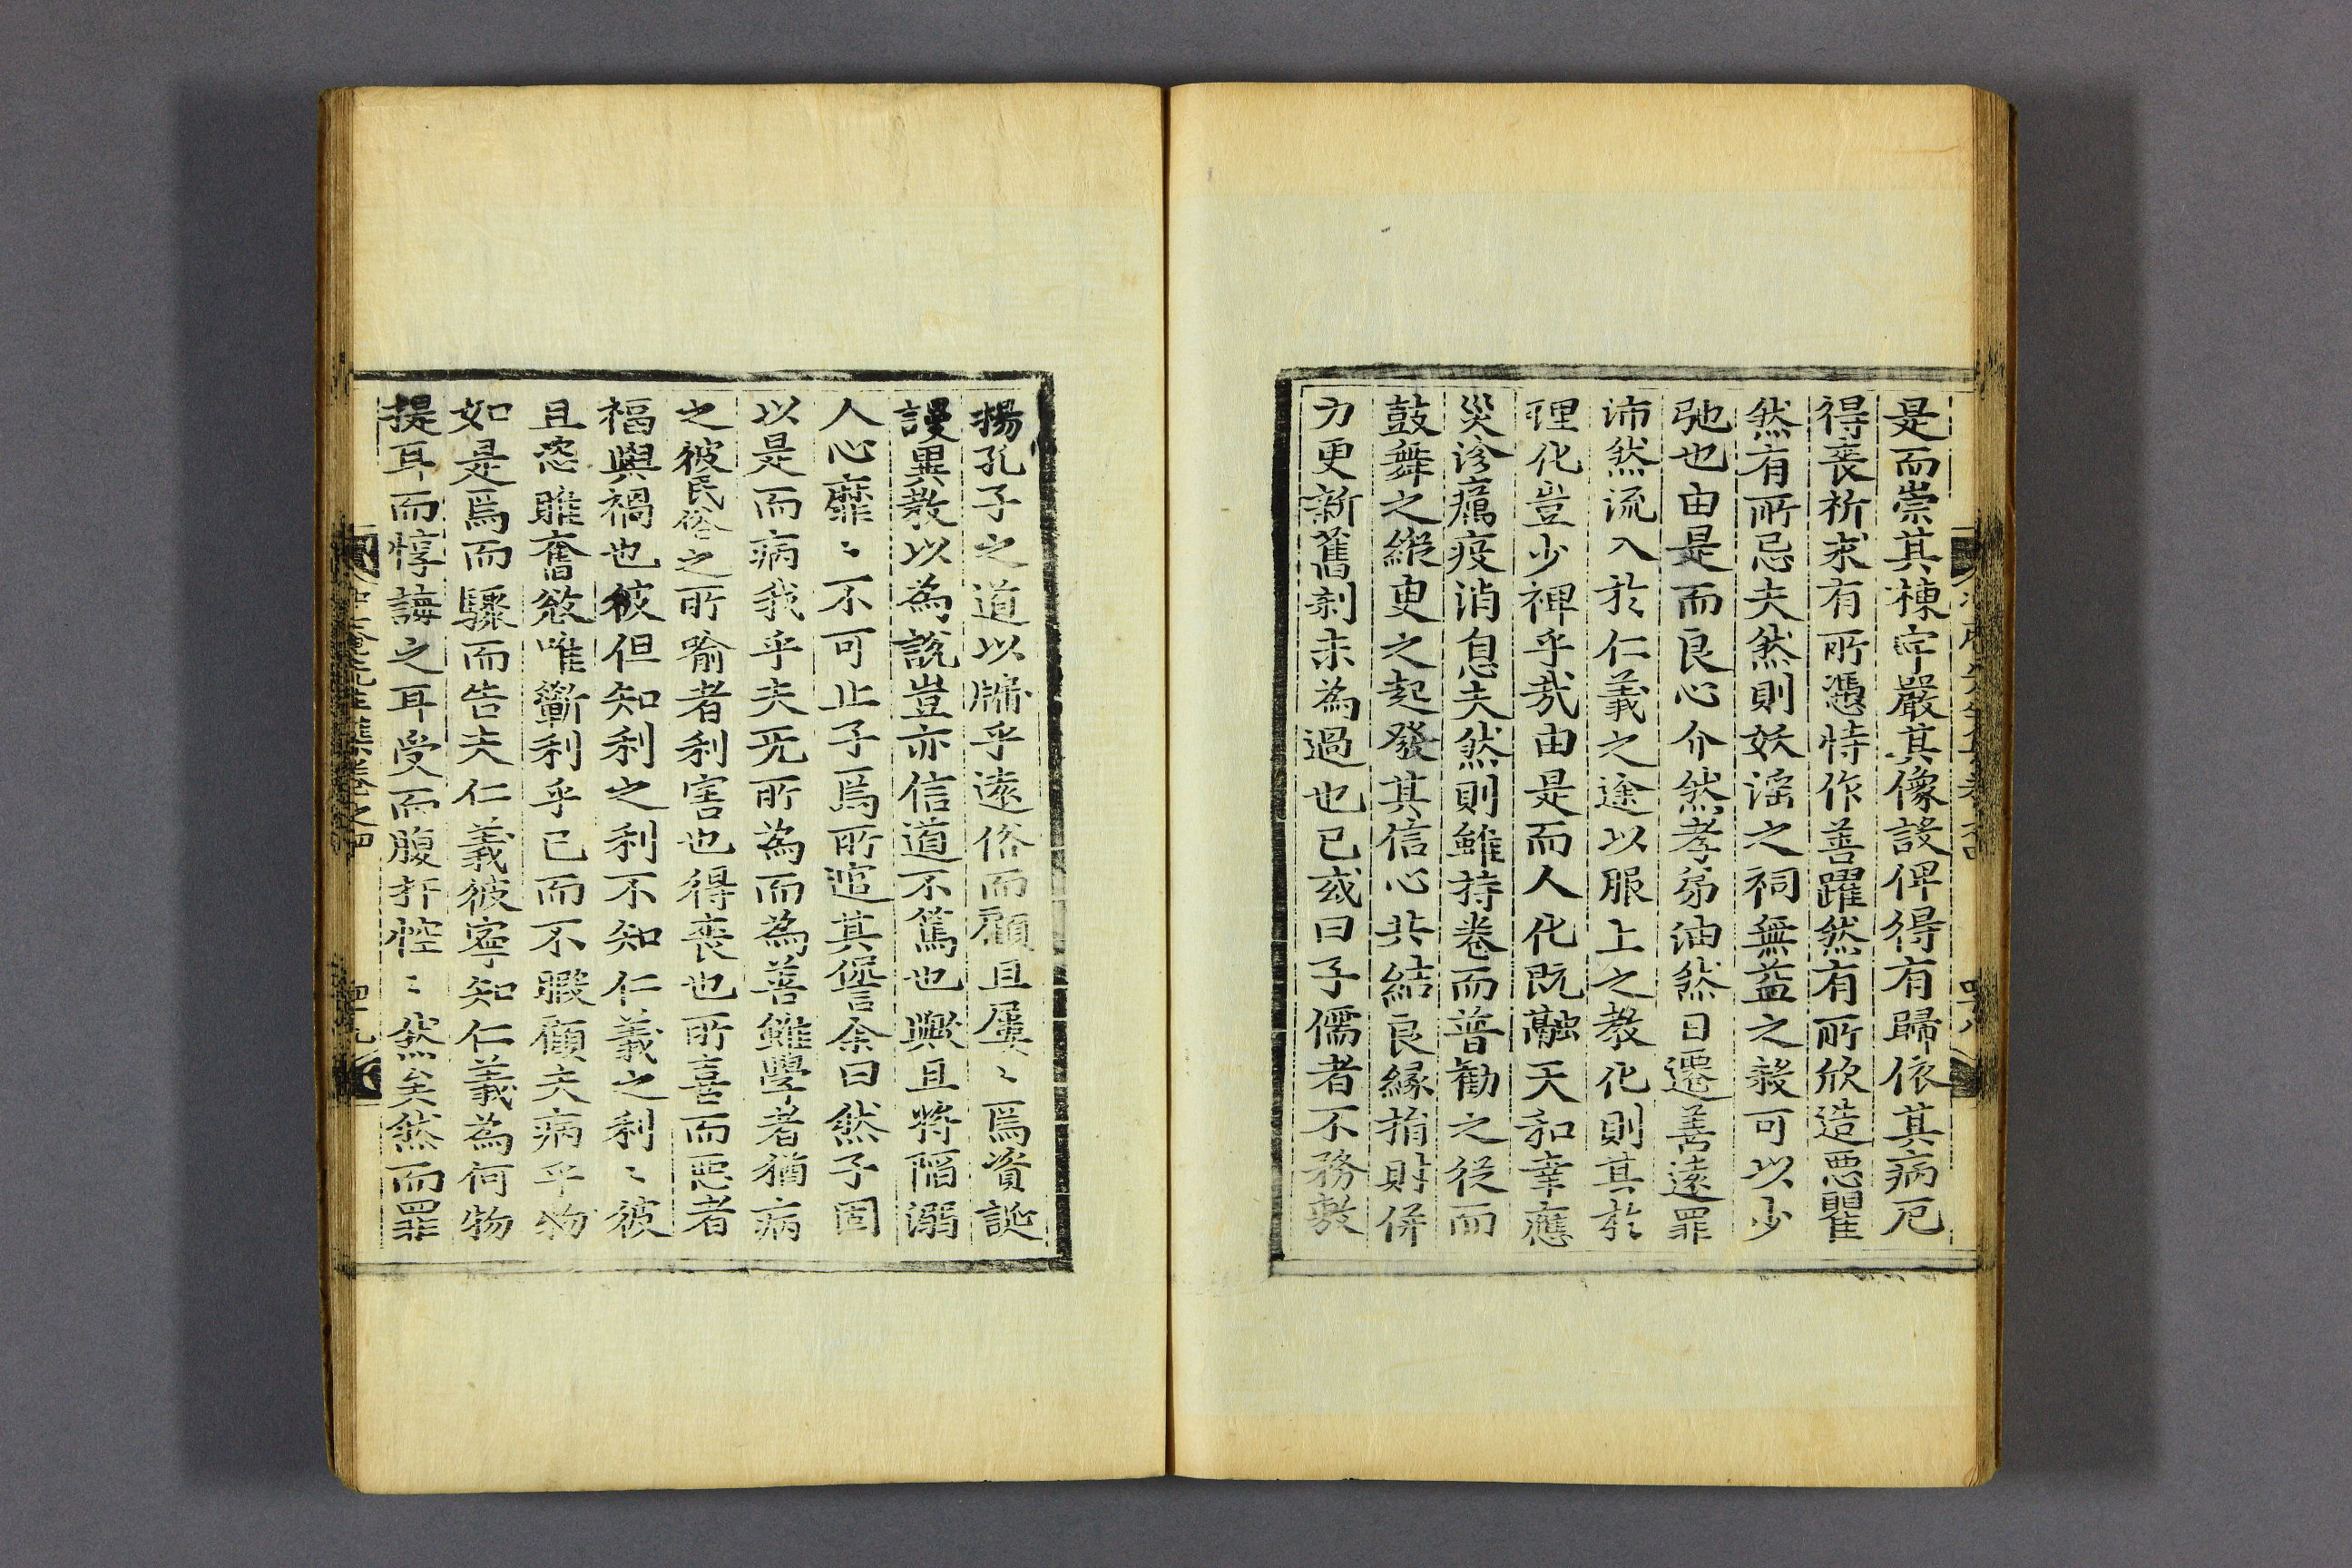 是而崇其棟宇嚴其像設俾得有歸依其病厄
得喪祈求有所憑恃作善躍然有所欣造惡瞿
然有所忌夫然則妖淫之祠無益之殺可以少
弛也由是而良心介然孝弟油然日遷善遠罪
沛然流入於仁義之途以服上之教化則其於
理化豈少裨乎哉由是而人化既融天和幸應
災沴癘疫消息夫然則雖持卷而普勸之從而
鼓舞之縱臾之起發其信心共結良緣捐財併
力更新舊刹未為過也已或曰子儒者不務敦
揚孔子之道以牖乎遠俗而顧且屢〻焉資誕
謾異教以為說豈亦信道不篤也歟且將陷溺
人心靡〻不可止子焉所逭其僁言余曰然子固
以是而病我乎夫旡所為而為善雖學者猶病
之彼民俗之所喻者利害也得喪也所喜而惡者
福與禍也彼但知利之利不知仁義之利〻彼
且恣睢奮慾唯蘄利乎已而不暇顧夫病乎物
如是焉而驟而告夫仁義彼寧知仁義為何物
提耳而惇誨之耳受而腹扞悾〻然矣然而罪